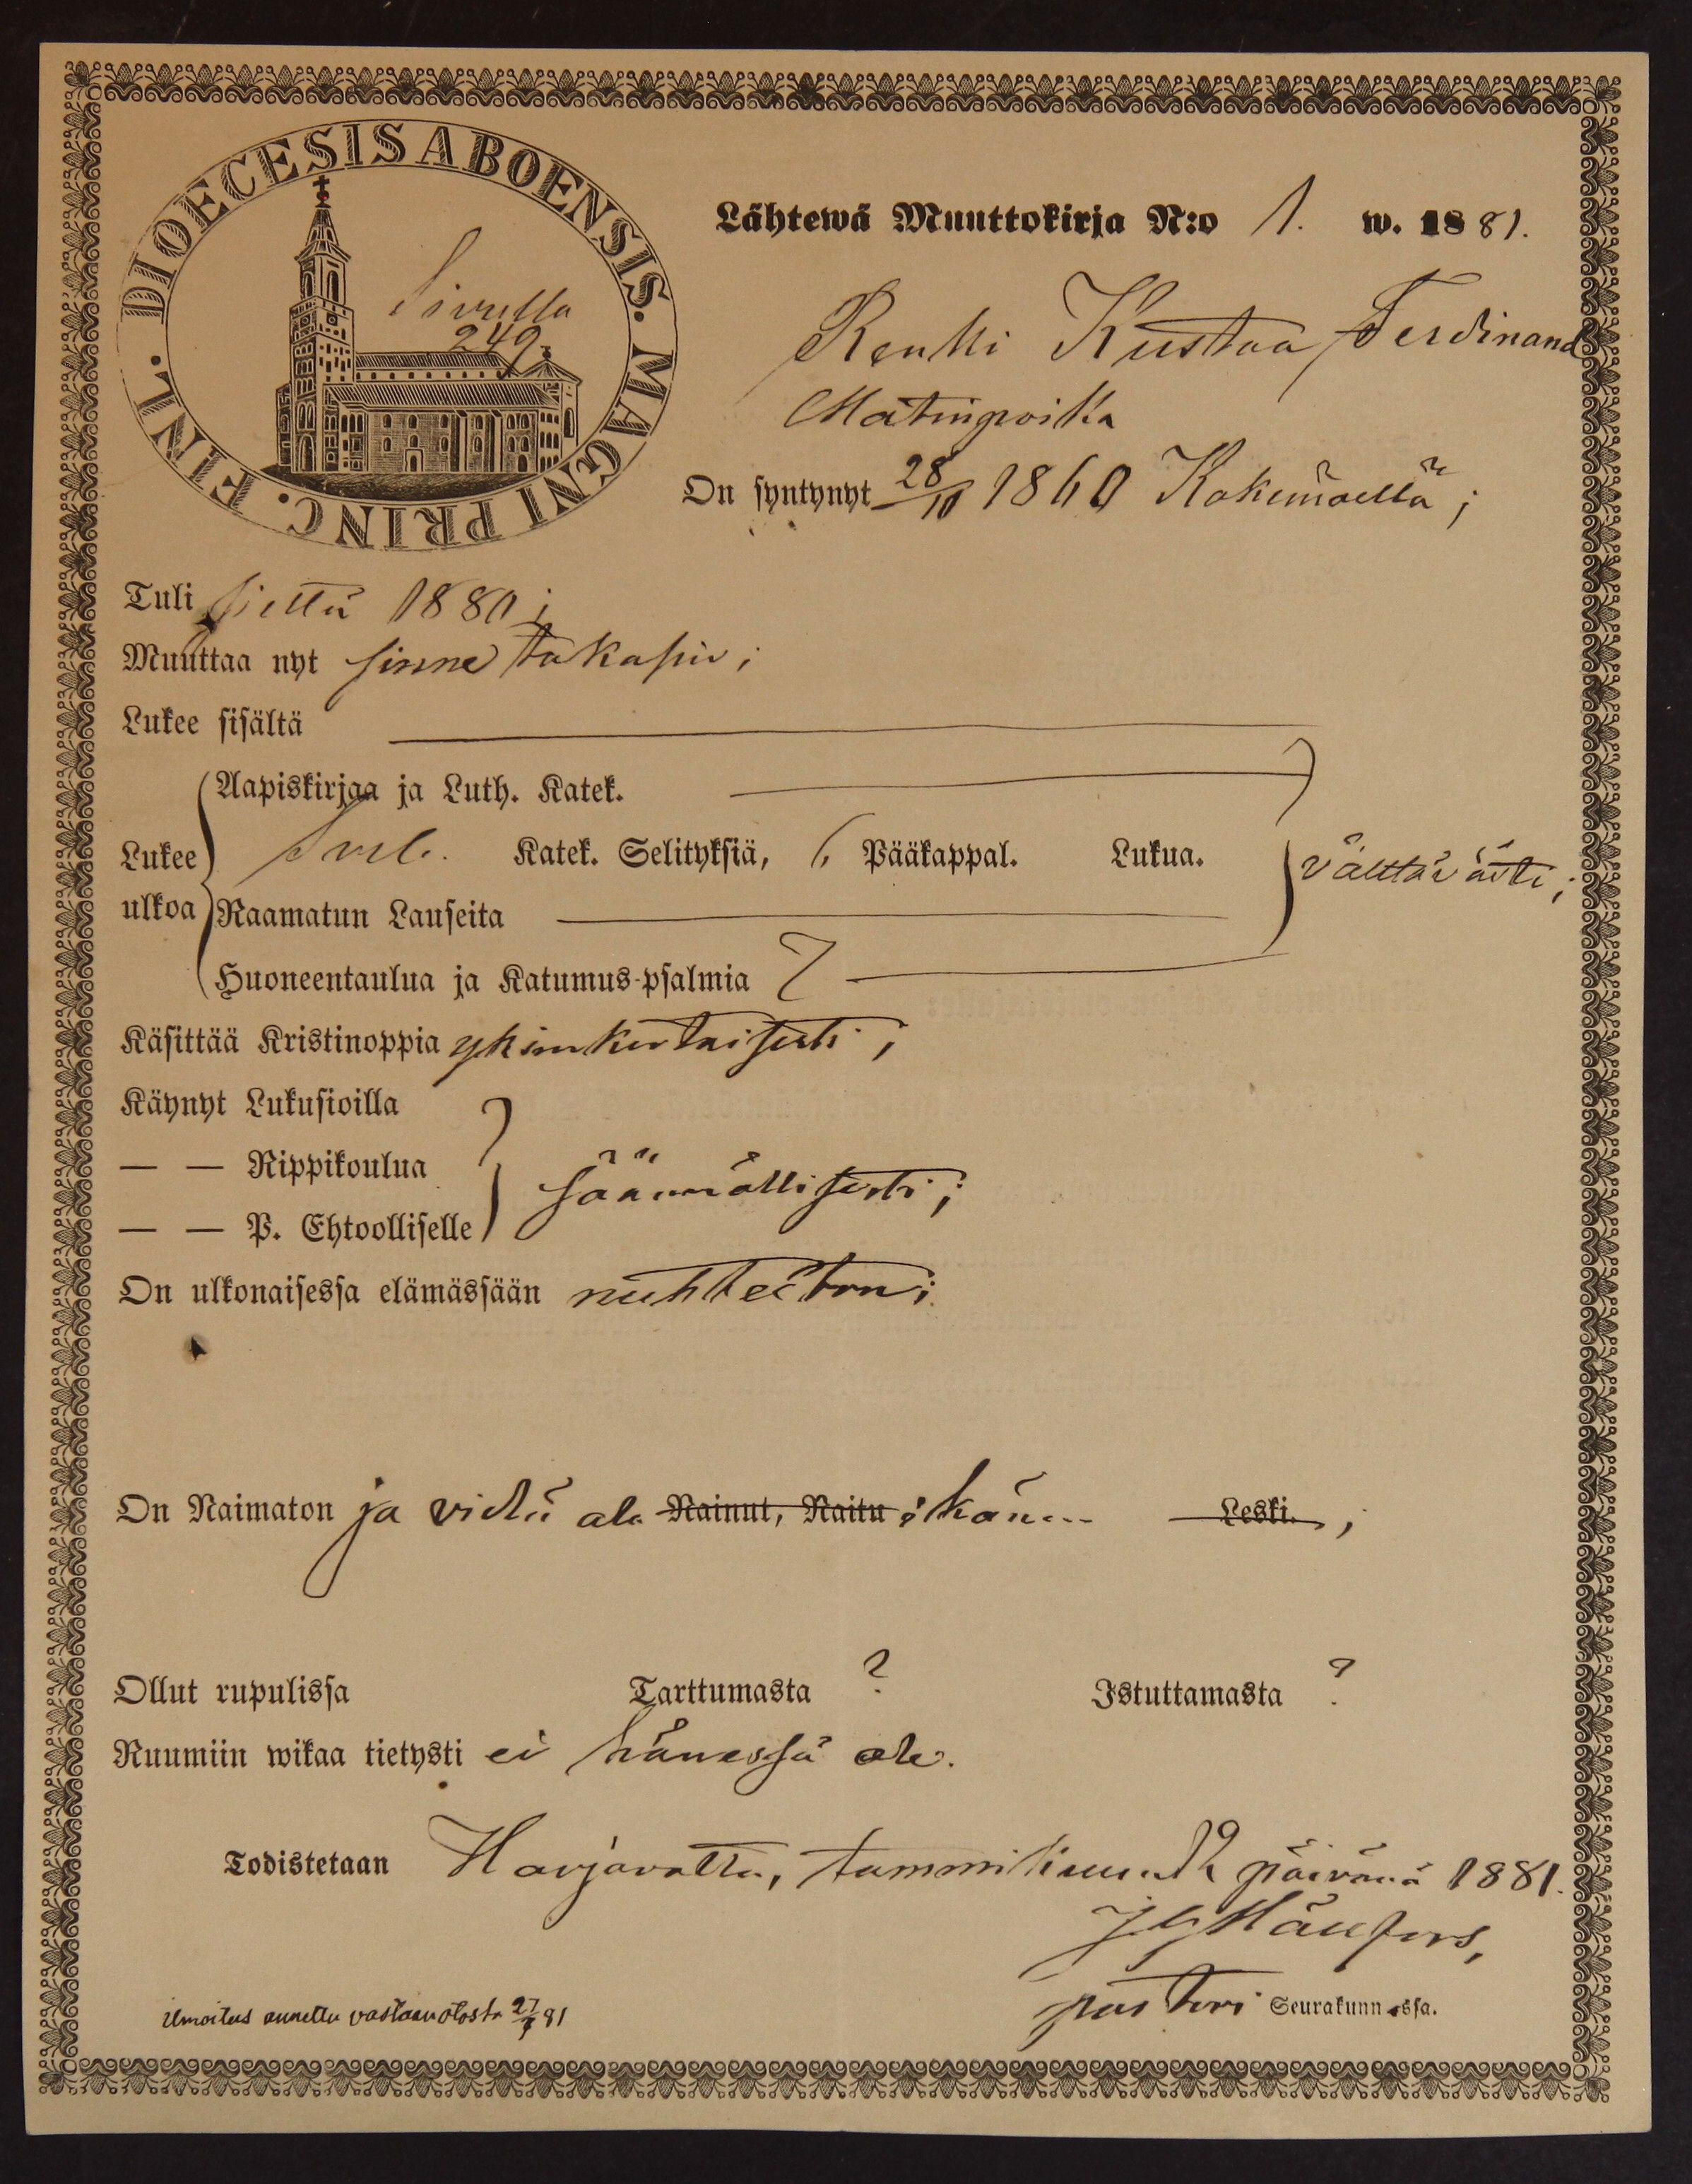 DIOECESIS ABOENSIS. MAGNI PRINC. FINL.
Sivulla
249
Lähtewä Muuttokirja N:o 1. w. 1881.
Renki Kustaa Ferdinand
Matinpoika
On syntynyt 28/10 1860 Kokemäellä;
Tuli sieltä 1880;
Muuttaa nyt sinne takasin;
Lukee sisältä
Aapiskirjaa ja Luth. Katek.
Lukee Katek. Selityksiä, Pääkappal. Lukua. välttäväati;
ulkoa Raamatun Lauseita
Huoneentaulua ja Katumus-psalmia
Käsittää Kristinoppia yksinkertaisesti;
Käynyt Lukusioilla
— — Rippikoulua
säännöllisesti;
— — P. Ehtoolliselle
On ulkonaisessa elämässään nuhteeton;
On Naimaton ja vielä ala Nainut, Naitu ikän Leski.,
Ollut rupulissa Tarttumasta ? Istuttamasta ?
Ruumiin wikaa tietysti ei hänessä ole.
Todistetaan Harjavalta, tammikuun 12 päivänä 1881.
pastori Seurakunnassa.
ilmoitus annettu vastaanotosta 27/7 81